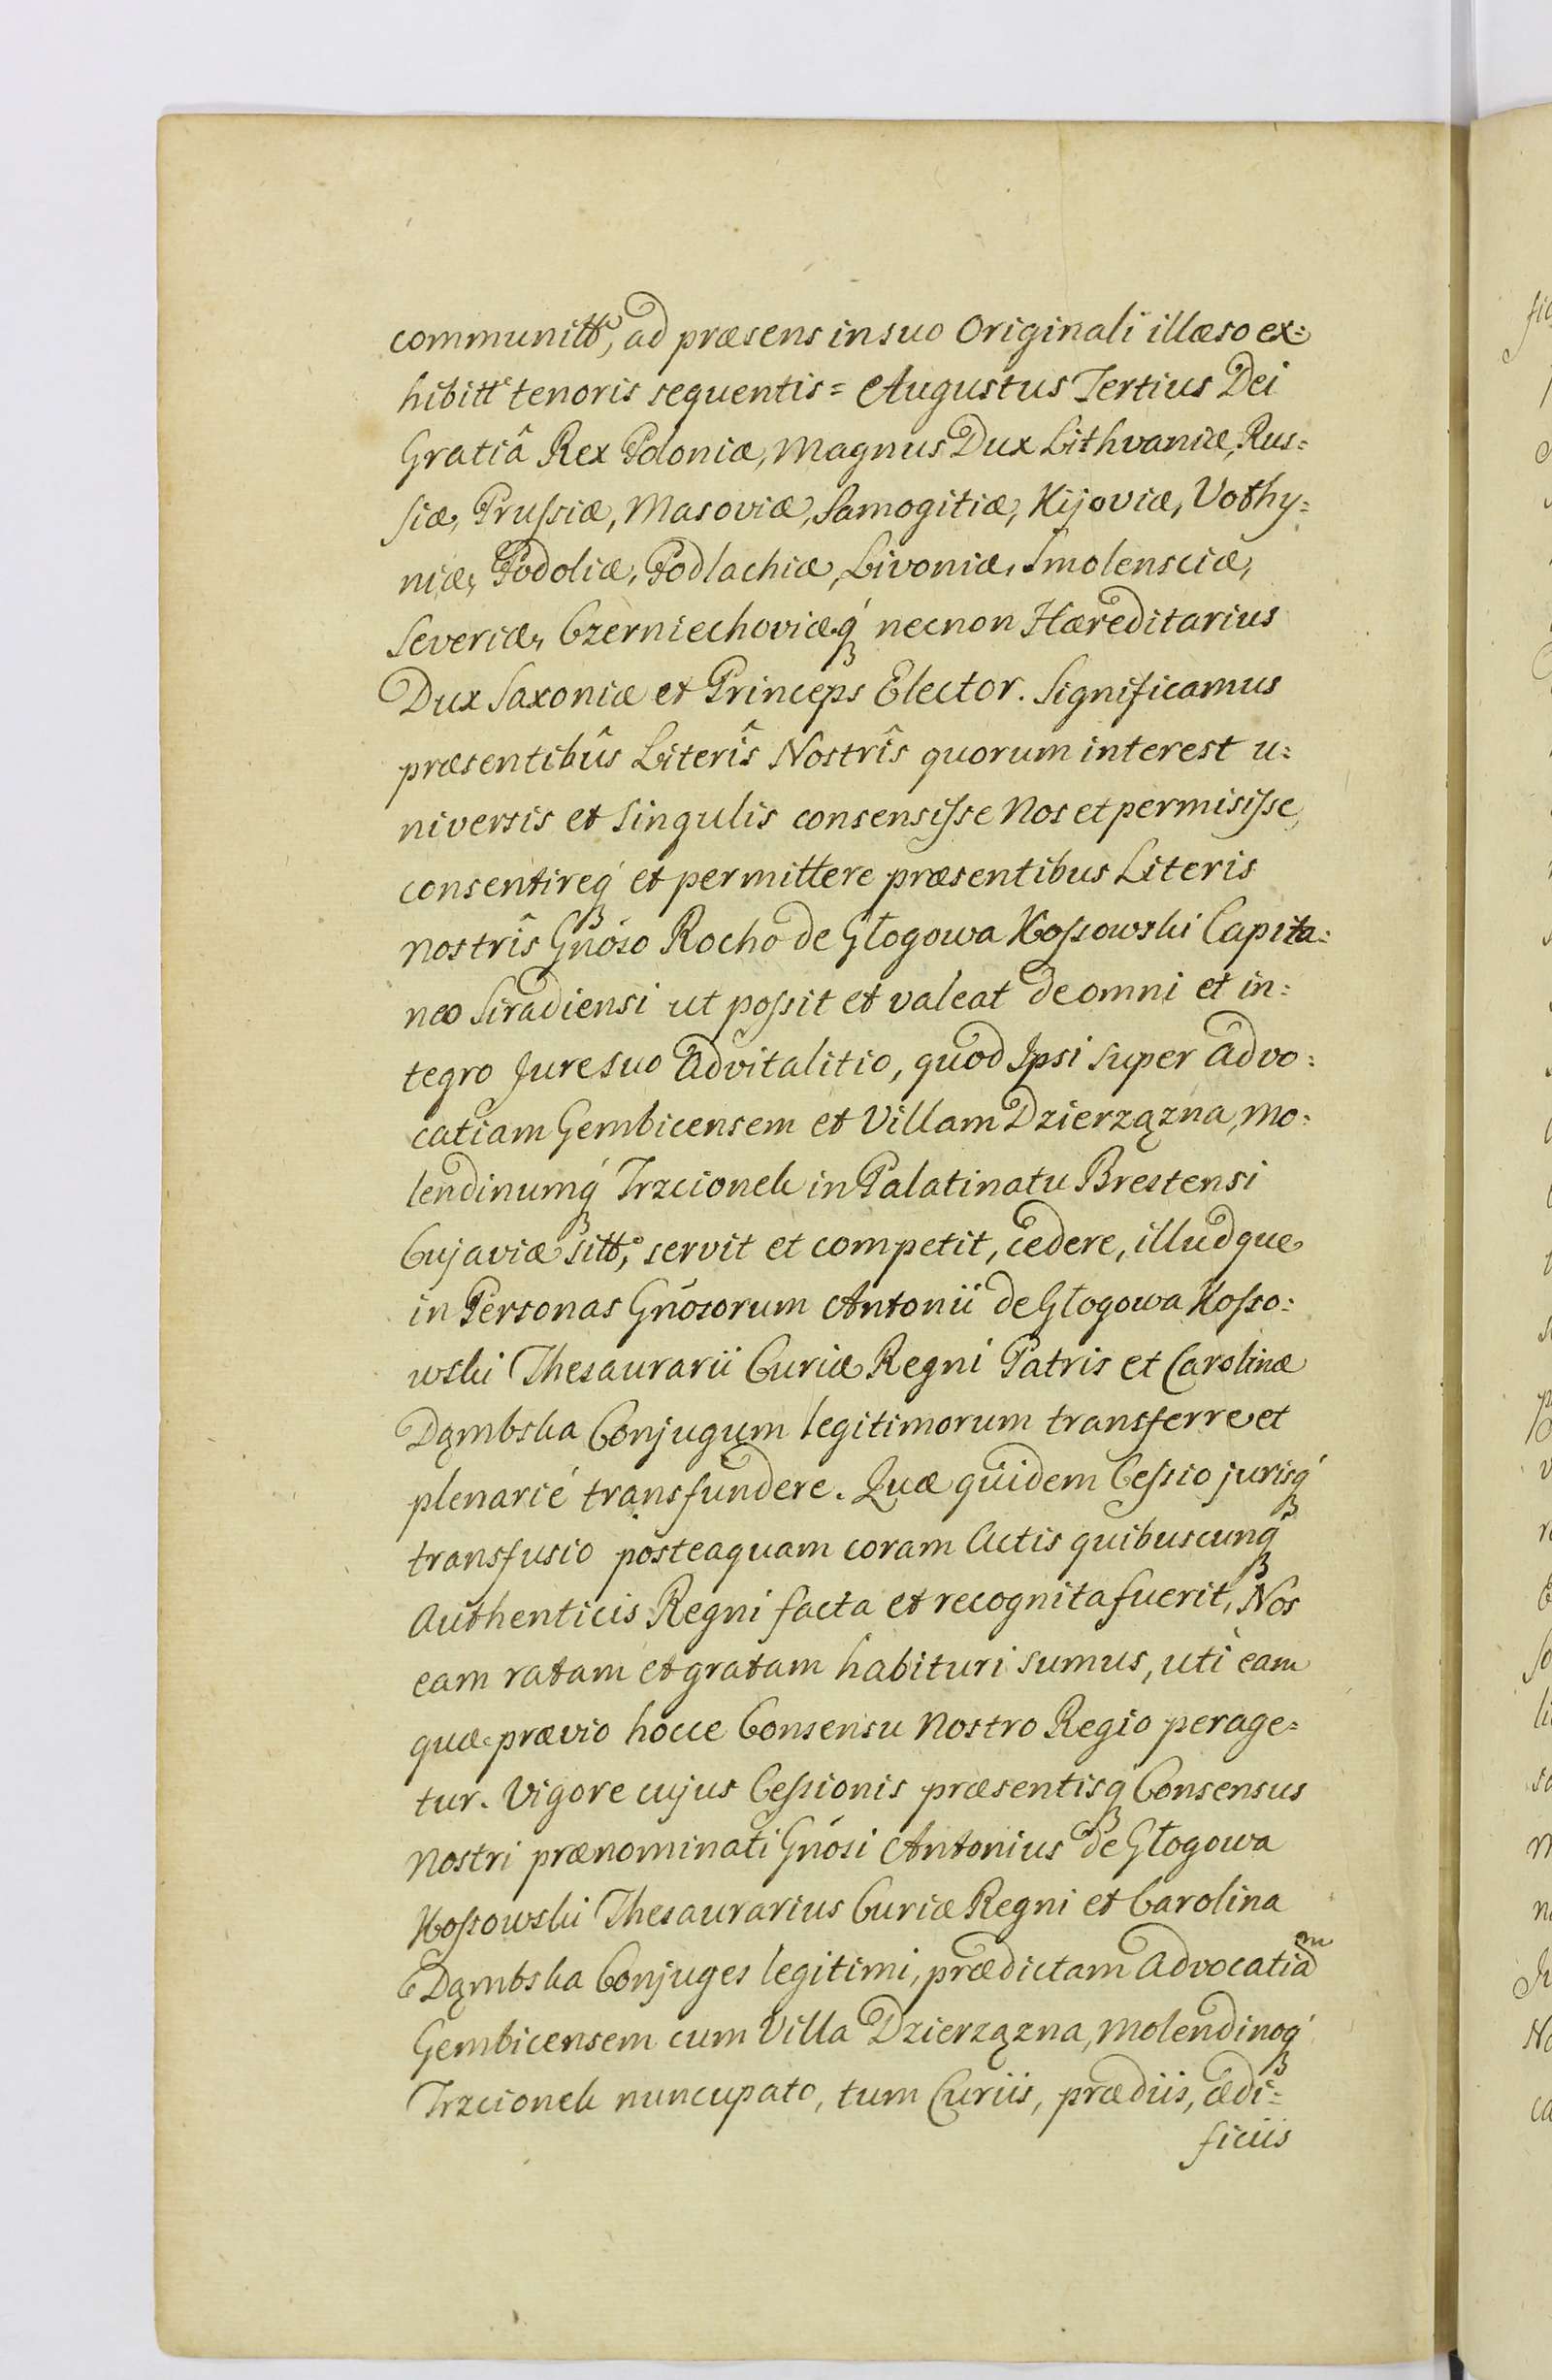 communitt͠, ad præsens in suo Originali illæso ex=
hibitt͠ tenoris sequentis = Augustus Tertius Dei
Gratiâ Rex Poloniæ, Magnus Dux Lithvaniæ, Rus=
siæ, Prussiæ, Masoviæ, Samogitiæ, Kijoviæ, Volhy=
niæ, Podoliæ, Podlachiæ, Livoniæ, Smolensciæ,
Severiæ, Czerniechoviæq́ necnon Hæreditarius
Dux Saxoniæ et Princeps Elector. Significamus
præsentibûs Literîs Nostrîs quorum interest u=
niversis et singulis consensisse Nos et permisisse,
consentireq́ et permittere præsentibus Literis
nostrîs Gnóso Rocho de Głogowa Kossowski Capita=
neo Siradiensi ut possit et valeat de omni et in=
tegro Jure suo advitalitio, quod Ipsi super advo=
catiam Gembicensem et Villam Dzierzązna, mo=
lendinumq́ Trzcionek in Palatinatu Brestensi
Cujaviæ sitt͠, servit et competit, cedere, illudque
in Personas Gnósorum Antonii de Głogowa Kosso=
wski Thesaurarii Curiæ Regni Patris et Carolinæ
Dąmbska Conjugum legitimorum transferre et
plenarié transfundere. Quæ quidem Cessio jurisq́
transfusio posteaquam coram Actis quibuscunq́
Authenticis Regni facta et recognita fuerit, Nos
eam ratam et gratam habituri sumus, uti eam
quæ prævio hocce Consensu Nostro Regio perage=
tur. Vigore cujus Cessionis præsentisq́ Consensus
Nostri prænominati Gnósi Antonius de Głogowa
Kossowski Thesaurarius Curiæ Regni et Carolina
Dąmbska Conjuges legitimi, prædictam advocatiam
Gembicensem cum Villa Dzierzązna, molendinoq́
Trzcionek nuncupato, tum Curiis, prædiis, ædi=
ficiis